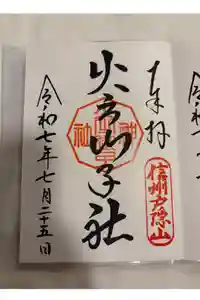 奉拝
信州戸隠山
火之御子社
令和七年七月二十五日